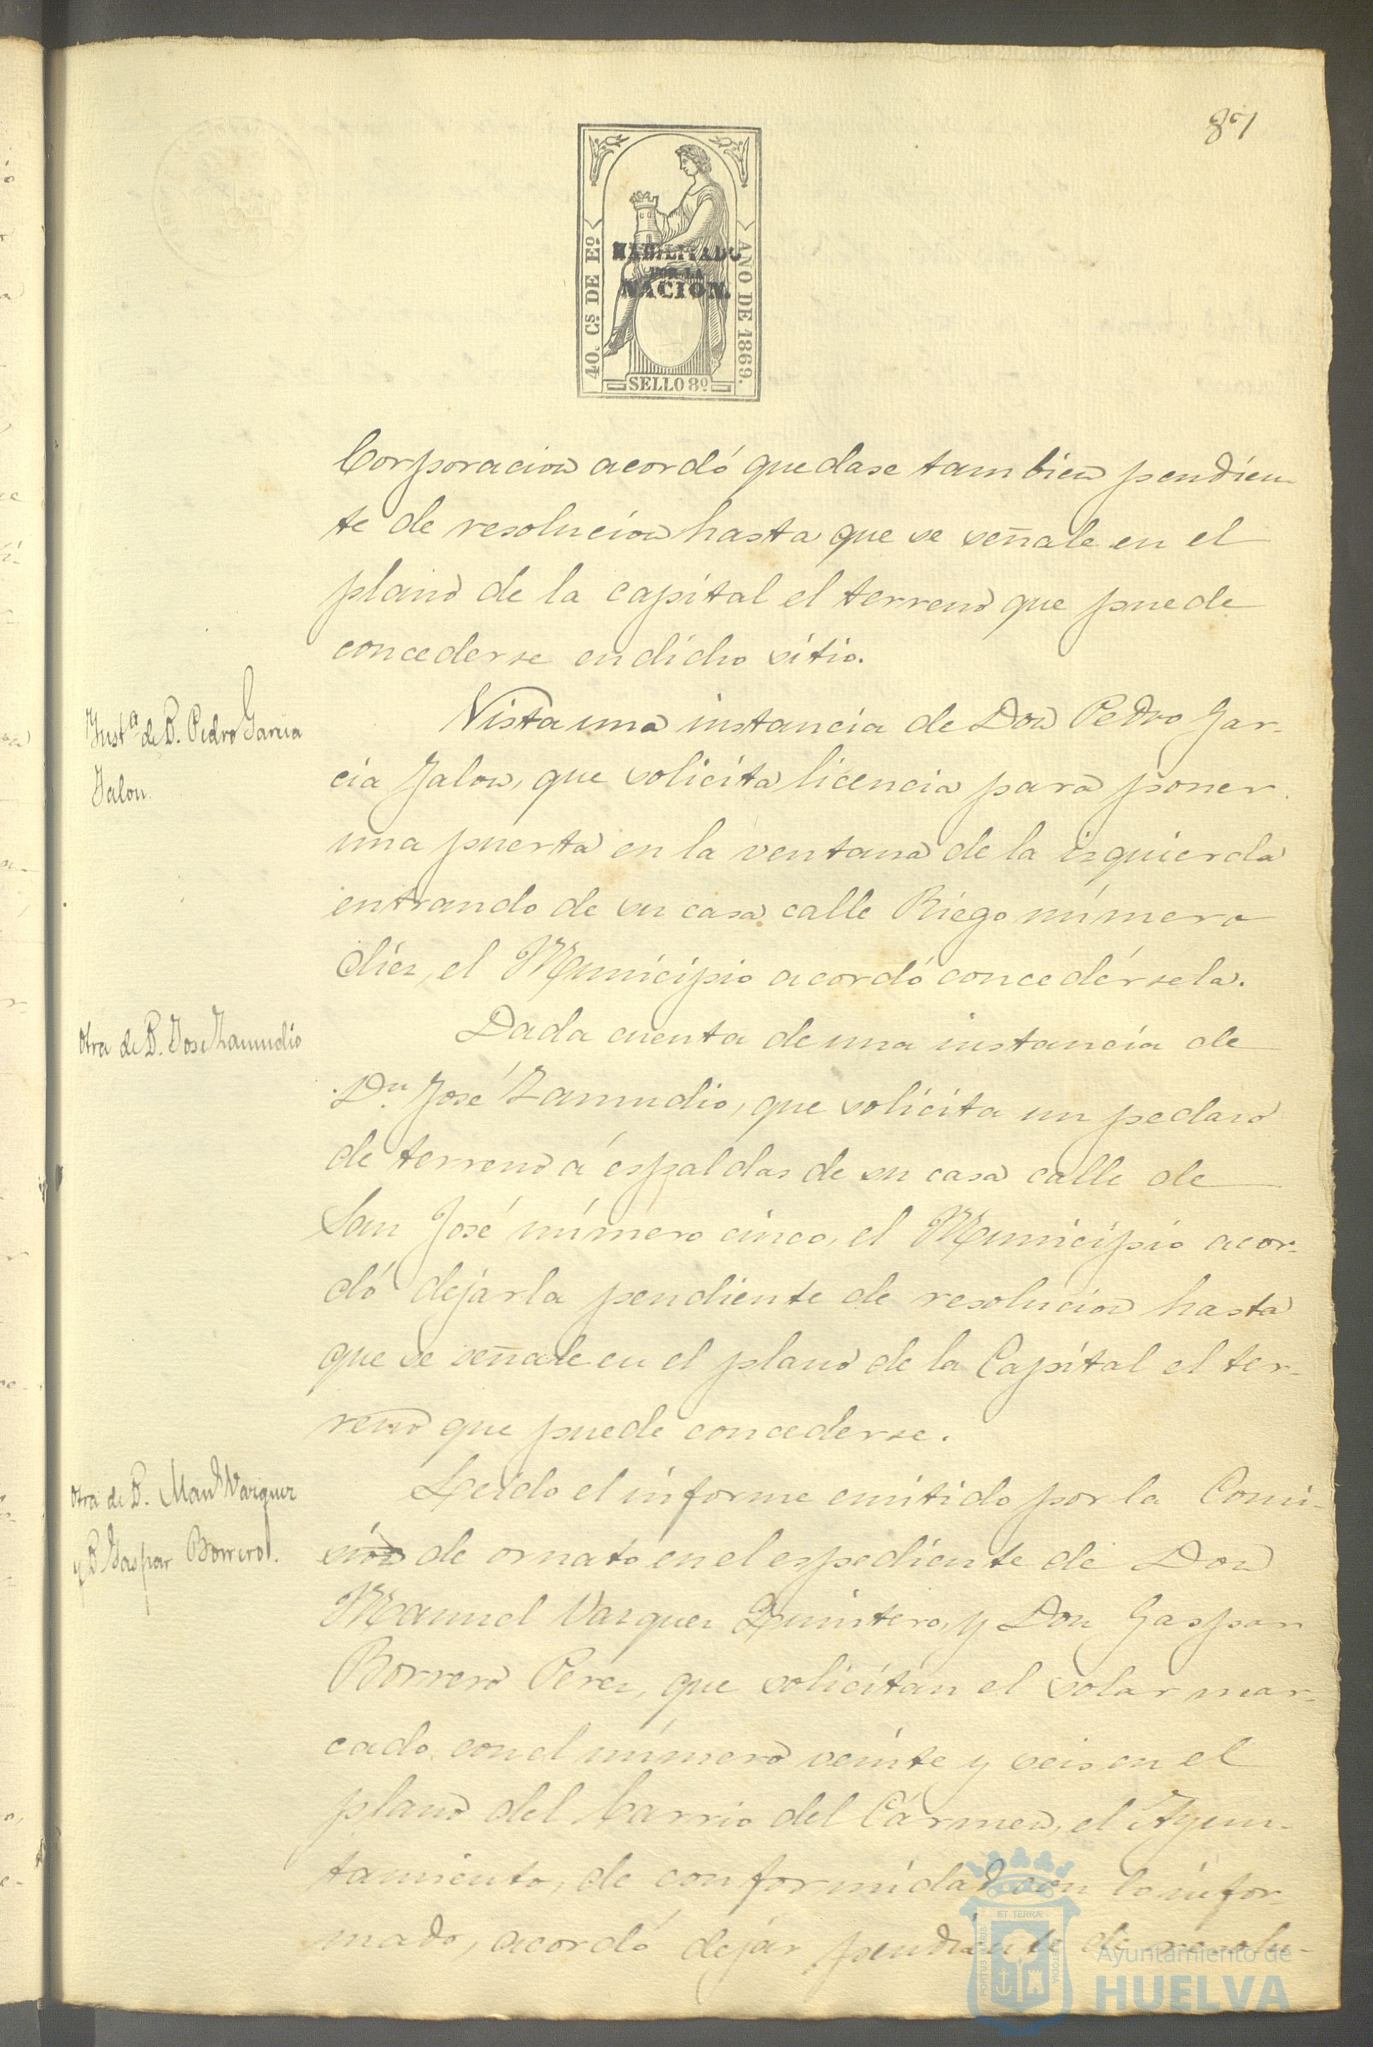 87
40. Cs. DE Eº
AÑO DE 1869.
HABILITADO
POR LA
NACION.
SELLO 8º
Corporacion acordó quedase tambien pendien-
te de resolucion hasta que se señale en el
plano de la capital el terreno que puede
concederse en dicho sitio.
Instª de D. Pedro Garcia
Jalon.
Vista una instancia de Don Pedro Gar-
cia Jalon, que solicita licencia para poner
una puerta en la ventana de la izquierda
entrando de su casa calle Riego número
diez, el Municipio acordó concedérsela.
Otra de D. Jose Zamudio
Dada cuenta de una instancia de
Dn. José Zamudio, que solicita un pedazo
de terreno á espaldas de su casa calle de
San José número cinco, el Municipio acor-
dó dejarla pendiente de resolucion hasta
que se señale en el plano de la Capital el ter-
reno que puede concederse.
Otra de D. Manl Vazquez
y D Gaspar Borrero.
Leido el informe emitido por la Comi-
sión de ornato en el espediente de Don
Manuel Vazquez Quintero, y Don Gaspar
Borrero Perez, que solicitan el solar mar-
cado con el número veinte y seis en el
plano del barrio del Cármen, el Ayun-
tamiento, de conformidad con lo infor
mado, acordó dejar pendiente de resolu-
Ayuntamiento de
HUELVA